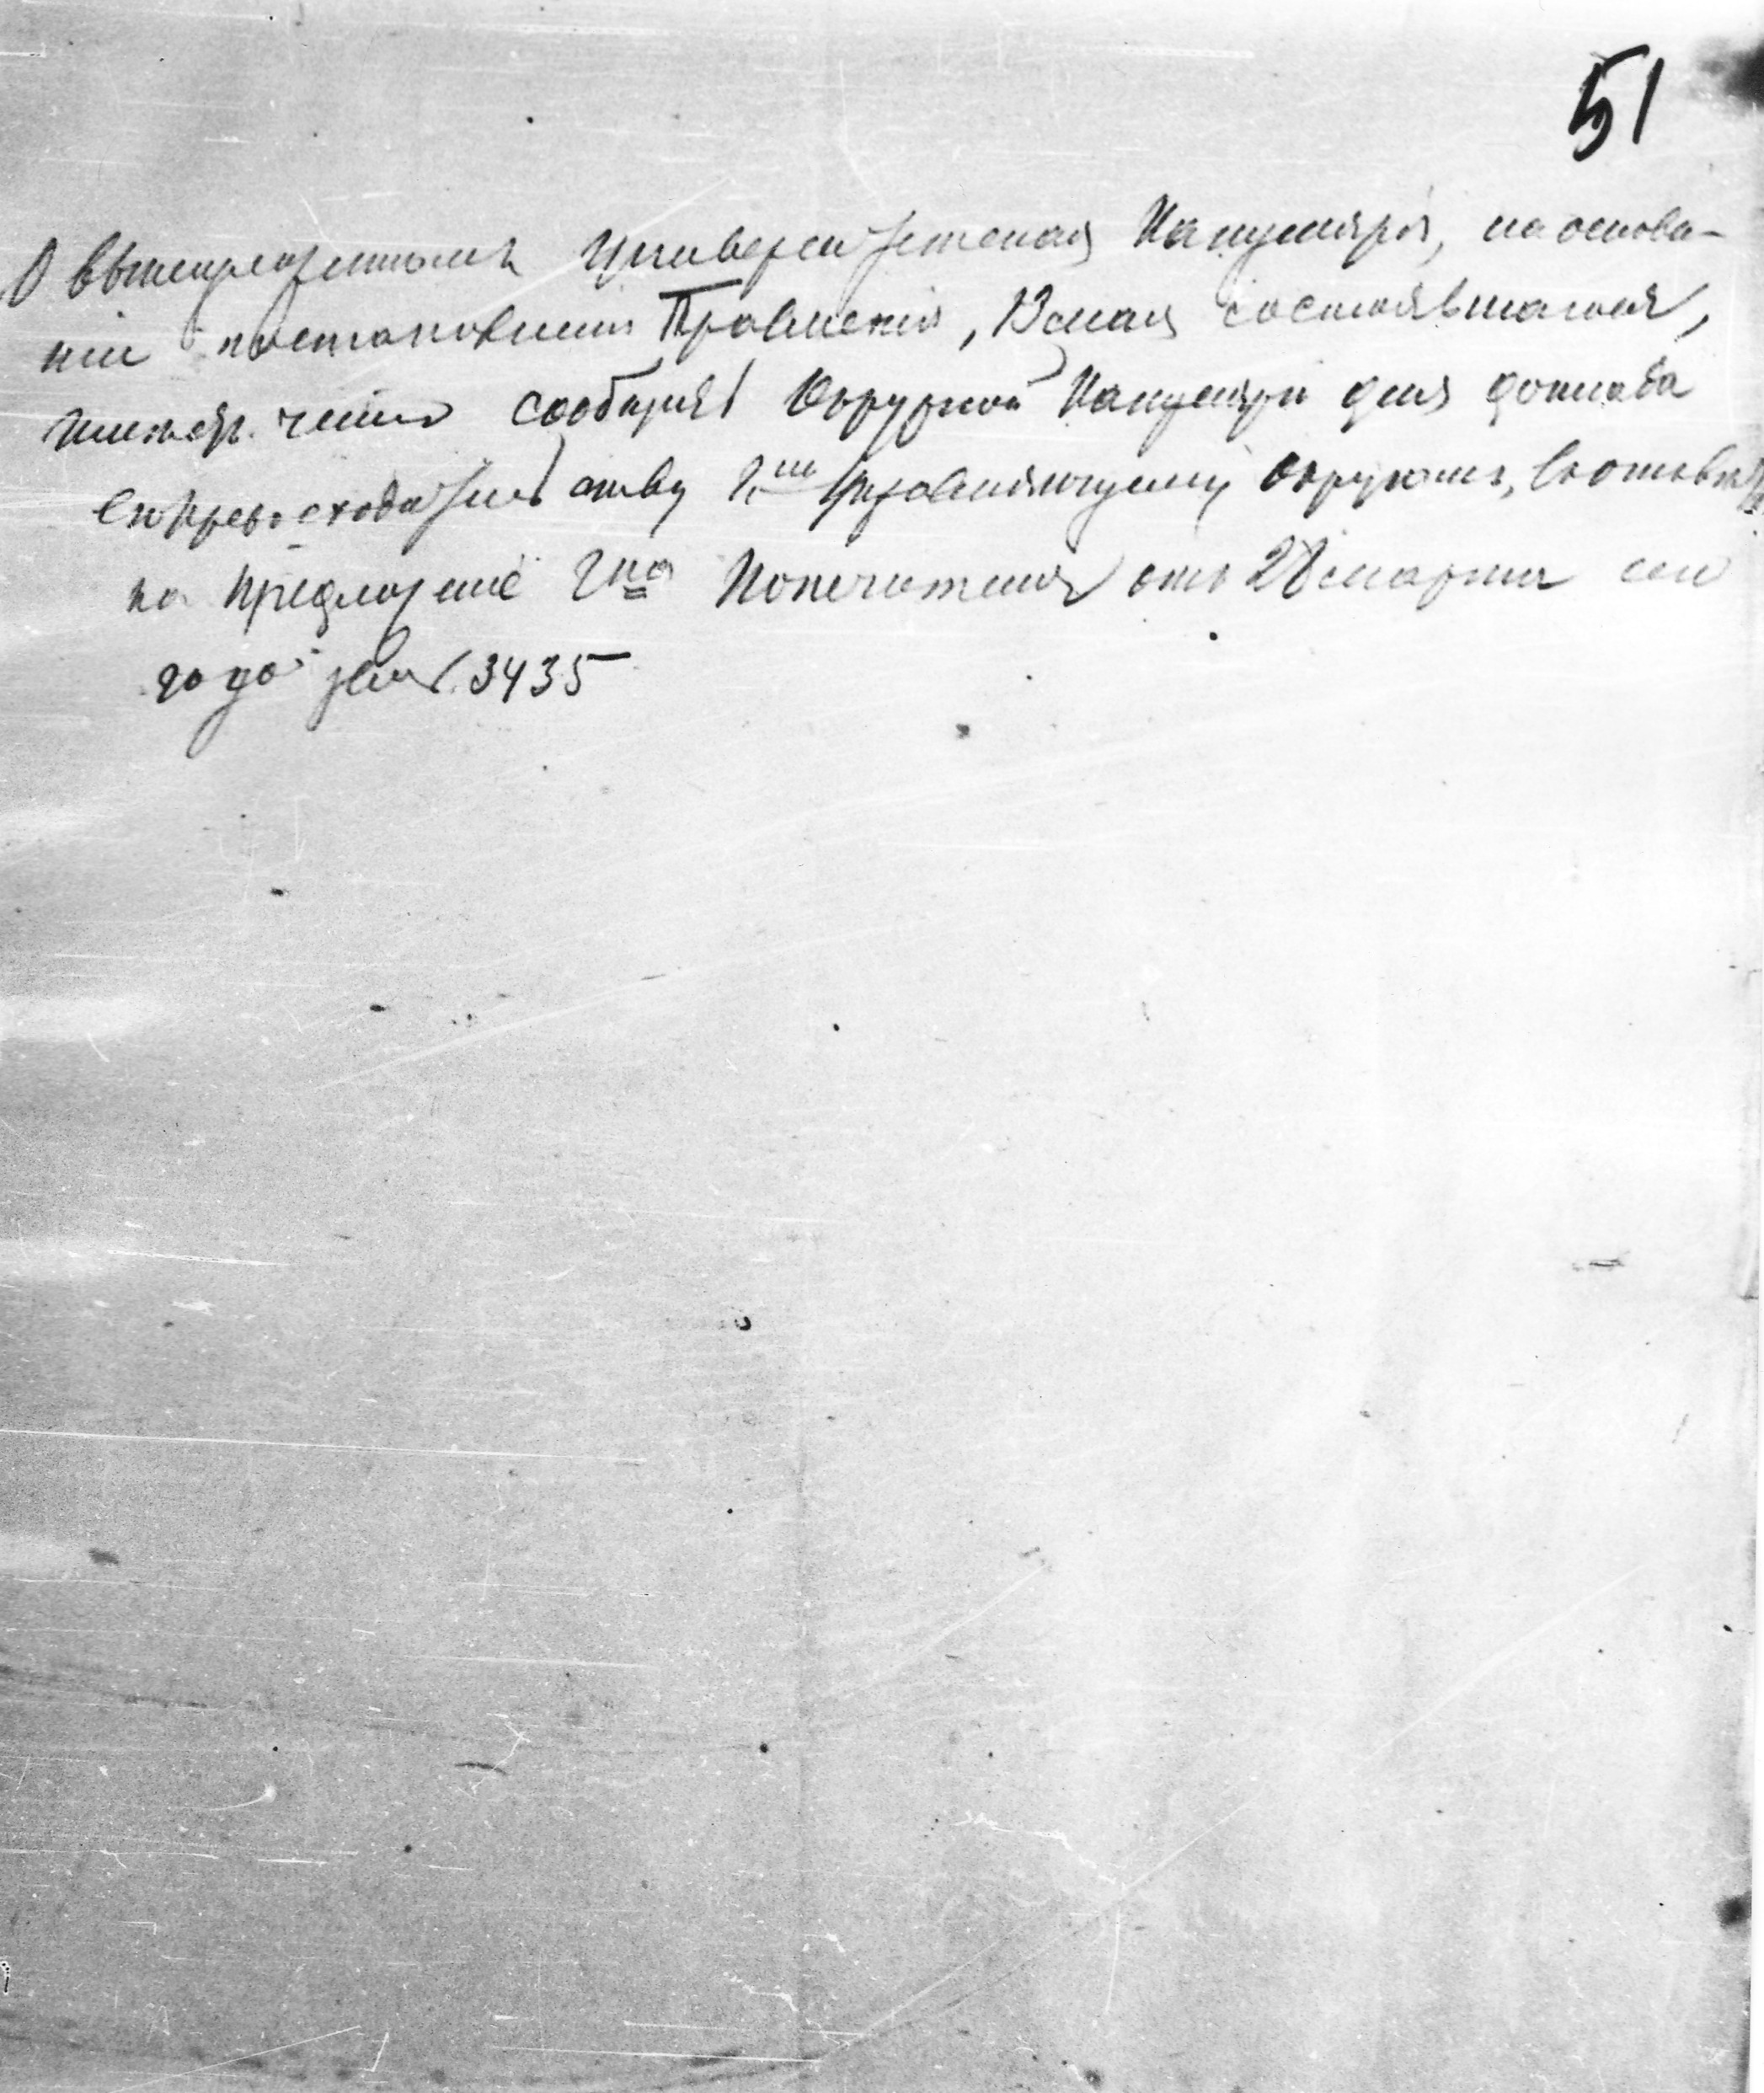 51
О вышеизложенномъ Университетская Канцелярія, на основа-
ніи постановленія Правленія, 13 мая состоявшагося,
имѣетъ честь сообщить Окружной Канцеляріи для доклада
Его Превосходительству Гну Управляющему Округомъ, въ отвѣтъ
на предложеніе Гна Попечителя отъ 28 марта сего
года за № 3435